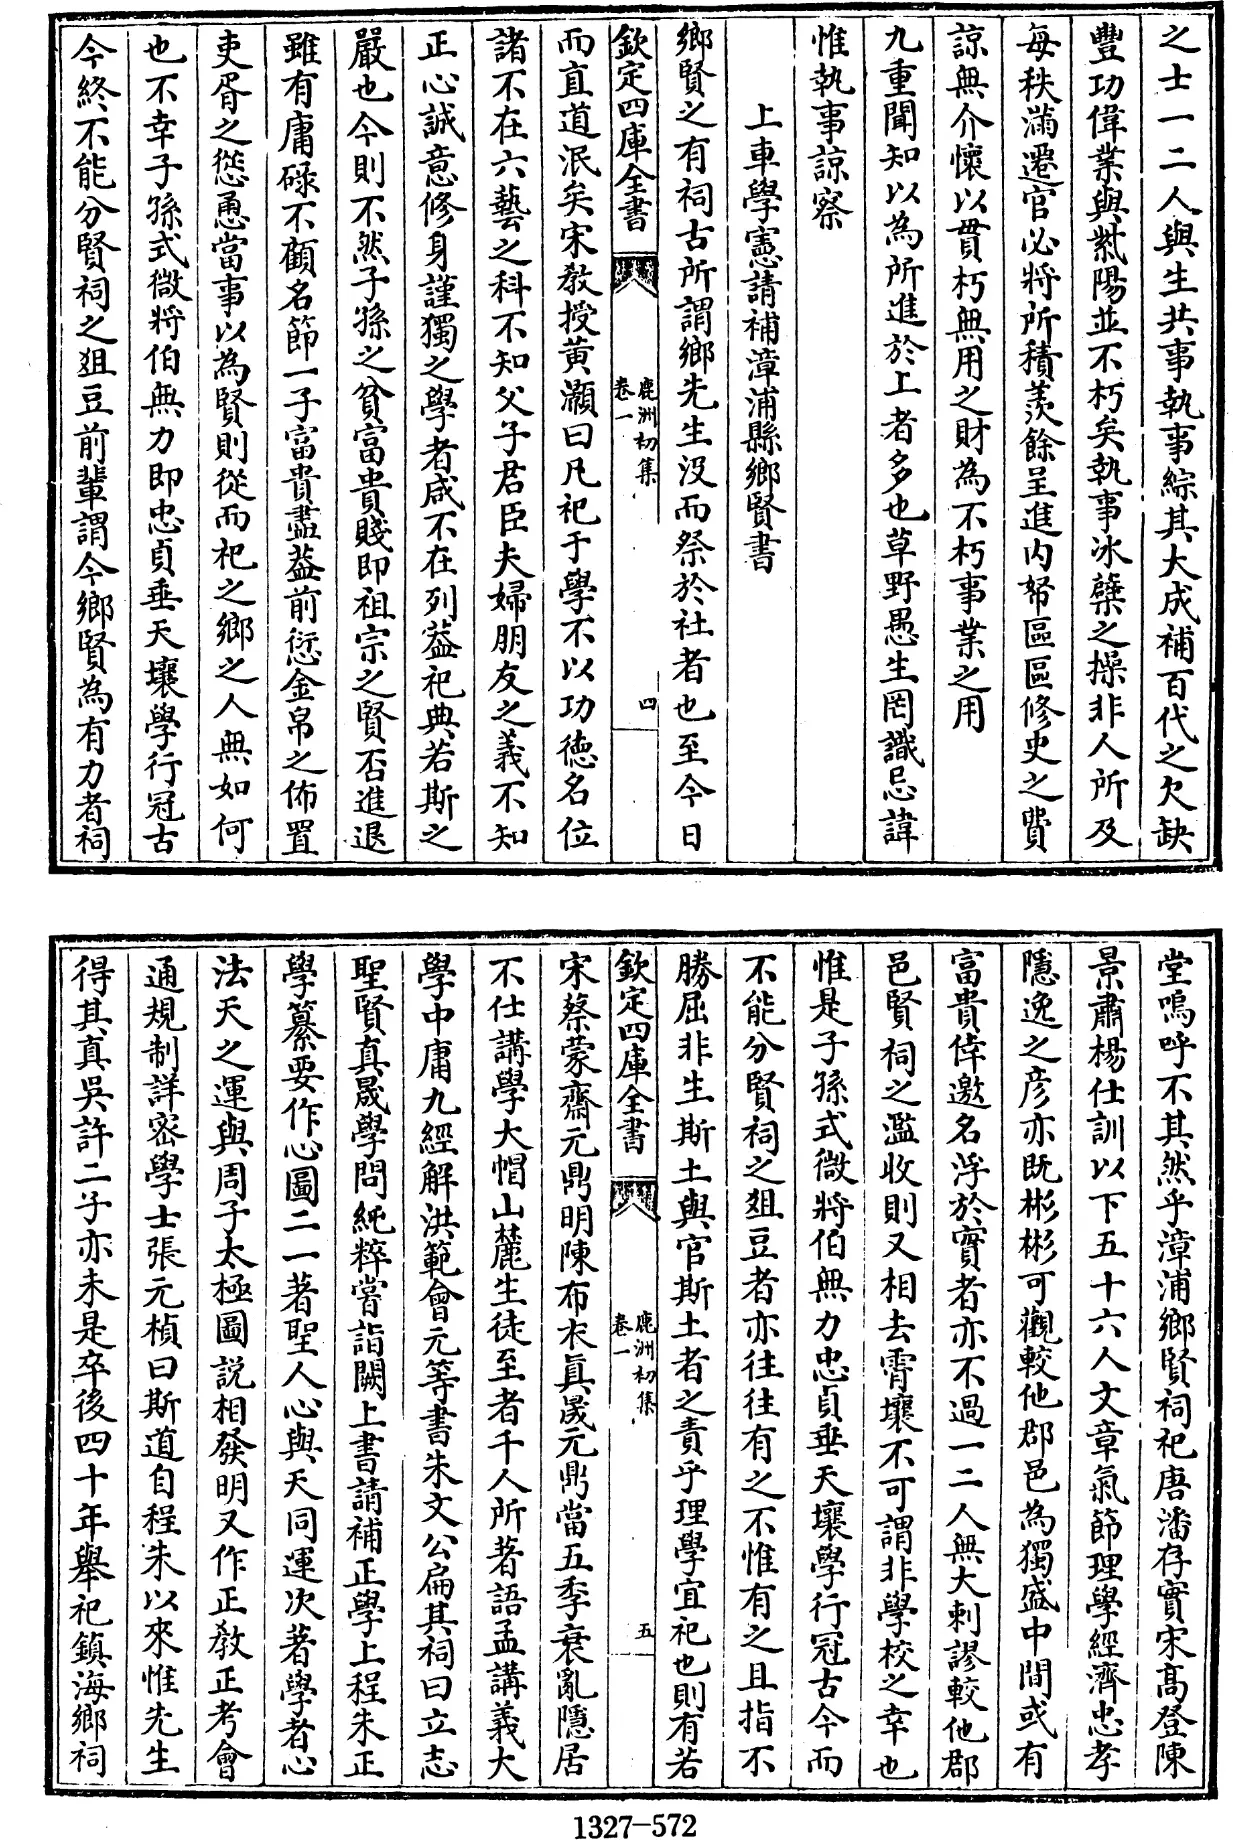 之士一二人與生共事執事綜其大成補百代之欠缺
豐功偉業與紫陽並不朽矣執事冰蘗之操非人所及
每秩滿遷官必將所積羨餘呈進内帑區區修史之費
諒無介懷以貫朽無用之財為不朽事業之用
九重聞知以為所進於上者多也草野愚生罔識忌諱
惟執事諒察
上車學憲請補漳浦縣鄉賢書
鄉賢之有祠古所謂鄉先生没而祭於社者也至今日
欽定四庫全書
鹿洲初集
卷一
四
而直道泯矣宋教授黄灝曰凡祀于學不以功徳名位
諸不在六藝之科不知父子君臣夫婦朋友之義不知
正心誠意修身謹獨之學者咸不在列葢祀典若斯之
嚴也今則不然子孫之貧富貴賤即祖宗之賢否進退
雖有庸碌不顧名節一子富貴盡葢前愆金帛之佈置
吏胥之慫恿當事以為賢則從而祀之鄉之人無如何
也不幸子孫式微將伯無力即忠貞垂天壤學行冠古
今終不能分賢祠之俎豆前輩謂今鄉賢為有力者祠
堂嗚呼不其然乎漳浦鄉賢祠祀唐潘存實宋髙登陳
景肅楊仕訓以下五十六人文章氣節理學經濟忠孝
隱逸之彦亦既彬彬可觀較他郡邑為獨盛中間或有
富貴倖邀名浮於實者亦不過一二人無大剌謬較他郡
邑賢祠之濫收則又相去霄壤不可謂非學校之幸也
惟是子孫式微將伯無力忠貞垂天壤學行冠古今而
不能分賢祠之俎豆者亦往往有之不惟有之且指不
勝屈非生斯土與官斯土者之責乎理學宜祀也則有若
欽定四庫全書
鹿洲初集
卷一
五
宋蔡蒙齋元鼎明陳布衣眞晟元鼎當五季衰亂隱居
不仕講學大帽山麓生徒至者千人所著語孟講義大
學中庸九經解洪範會元等書朱文公扁其祠曰立志
聖賢真晟學問純粹嘗詣闕上書請補正學上程朱正
學纂要作心圖二一著聖人心與天同運次著學者心
法天之運與周子太極圖説相發明又作正教正考會
通規制詳密學士張元楨曰斯道自程朱以來惟先生
得其真吳許二子亦未是卒後四十年舉祀鎮海鄉祠
1327-572